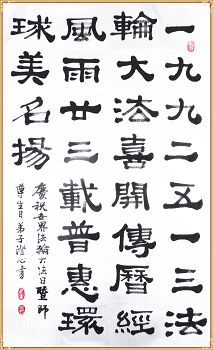 一九九二五一三法
輪大法喜開傳曆經
風雨廿三載普惠環
球美名揚
慶祝世界法輪大法日暨師
尊生日 弟子澄心書